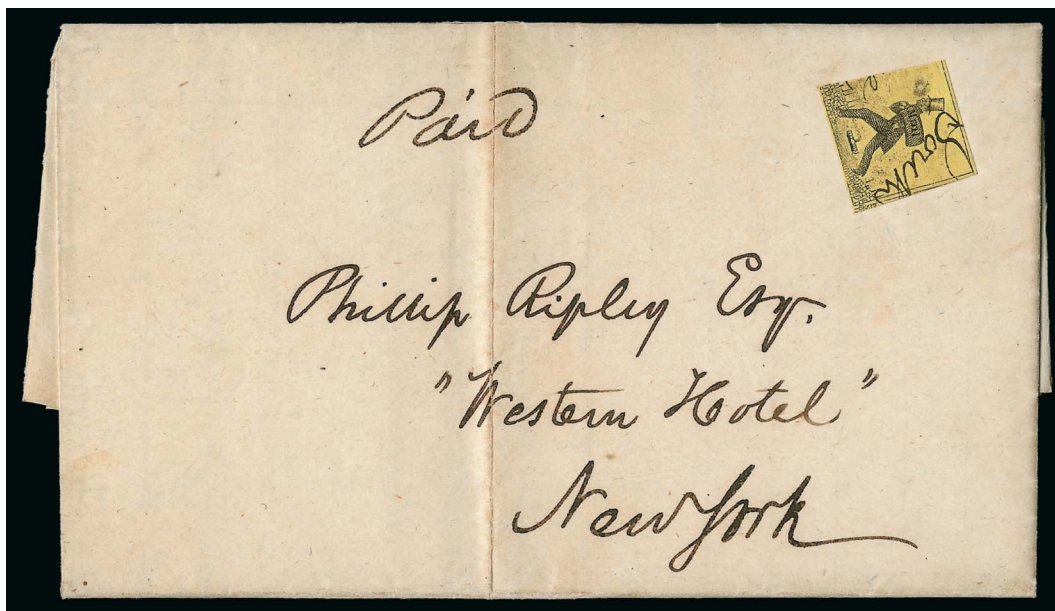 Paid
Phillip Ripley Esq.
"Western Hotel"
New York